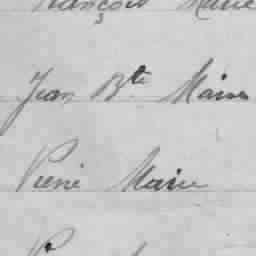 François Marie
Jean Bte Marie
Pierre Marie